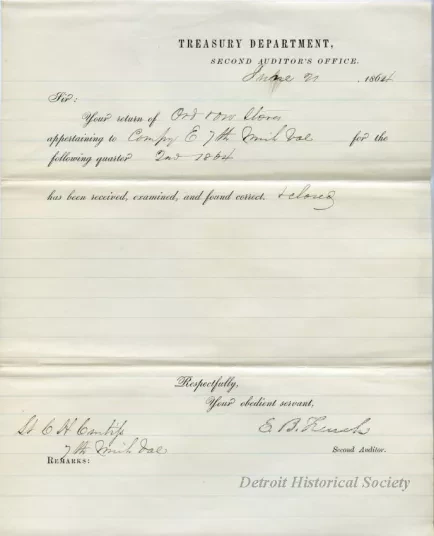 TREASURY DEPARTMENT,
SECOND AUDITOR'S OFFICE.
June 21 , 1864
Sir:
Your return of Ord Stores
appertaining to Compy E 7th Mich Vol for the
following quarter 2nd 1864
has been received, examined, and found correct. & closed
Respectfully,
Your obedient servant,
E. B. French
Second Auditor.
Lt C H
7th Mich Vol
REMARKS:
Detroit Historical Society